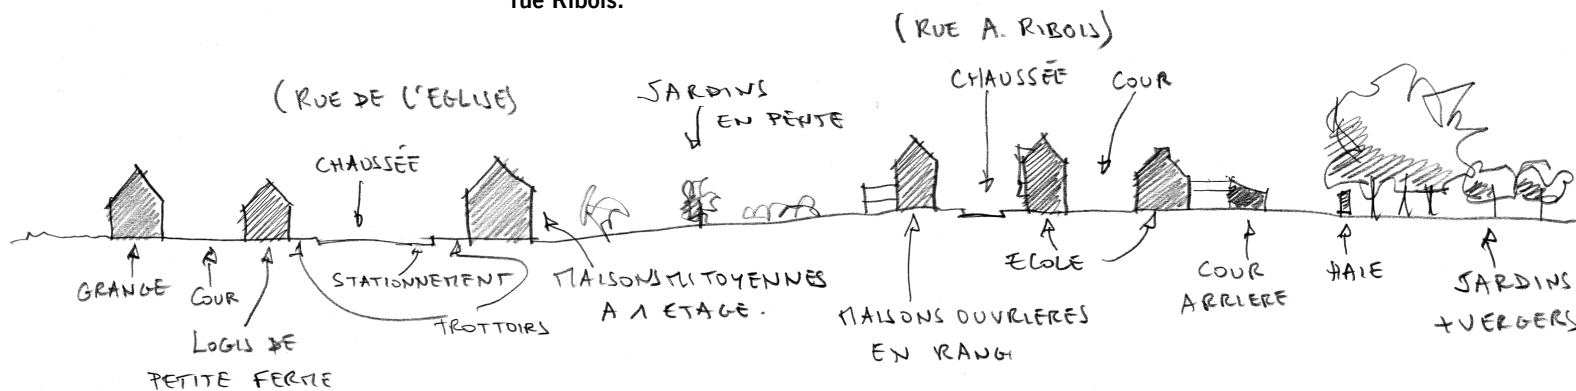 rue Ribois.
(RUE A. RIBOIS)
(RUE DE L'EGLISE)
JARDINS
EN PENTE
CHAUSSÉE
COUR
CHAUSSÉE
GRANGE
COUR
LOGIS DE
PETITE FERME
STATIONNEMENT
TROTTOIRS
MAISONS MITOYENNES
A 1 ETAGE.
MAISONS OUVRIERES
EN RANG
ECOLE
COUR
ARRIERE
HAIE
JARDINS
+ VERGERS